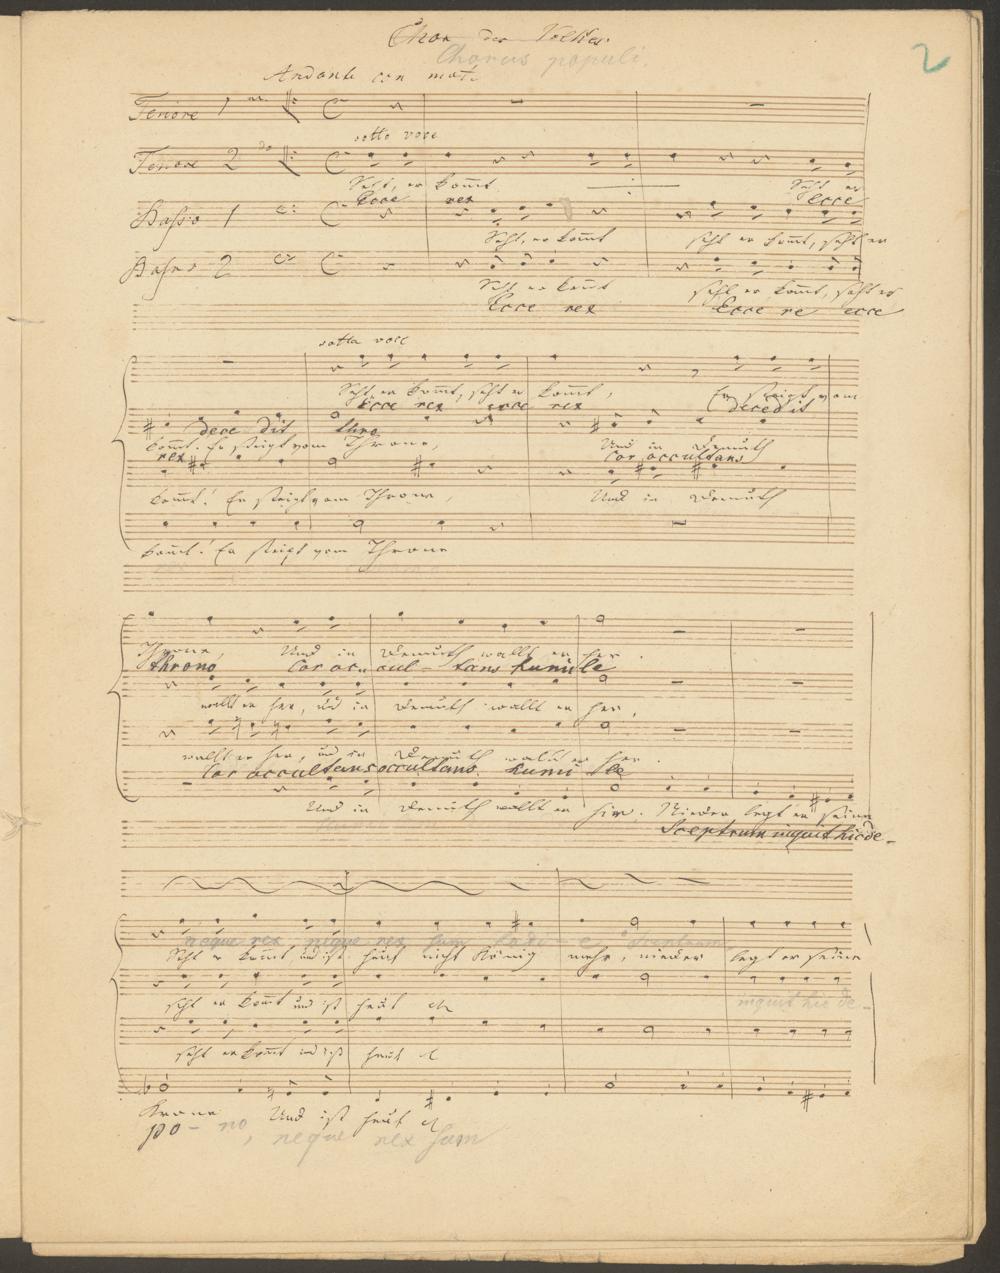 Chor des Volkes.
Chorus populi.
2
Andante con moto
Tenore 1 mo
sotto voce
Tenore 2 do
Seht, er kom̄t Seht er
Ecce rex Ecce
Basso 1
Seht, er kom̄t seht er kom̄t, seht er
Basso 2
Seht er kom̄t seht er kom̄t, seht er
Ecce rex Ecce re ecce
sotto voce
Seht, er kom̄t, seht er kom̄t, Er steigt vom
Ecce rex ecce rex decedit
dece dit thro
kom̄t. Er steigt vom Throne, Und in Demuth
rex Cor occultans
kom̄t! Er steigt vom Throne, Und in Demuth
kom̄t! Er steigt vom Throne
Throne, Und in Demuth wallt er her.
throno Cor occu cul - tans humile
wallt er her, und in Demuth wallt er her,
wallt er her, und in Demuth wallt er her.
Cor occultans occultans humi le
Und in Demuth wallt er her. Nieder legt er seine
Sceptrum inquit hic de-
neque rex neque rex sum
Seht er kom̄t und ist heut nicht König mehr, nieder legt er seine
seht er kom̄t und ist heut etc
inquit hic de-
seht er kom̄t und ist heut etc
Krone Und ist heut etc
po - no, neque rex sum